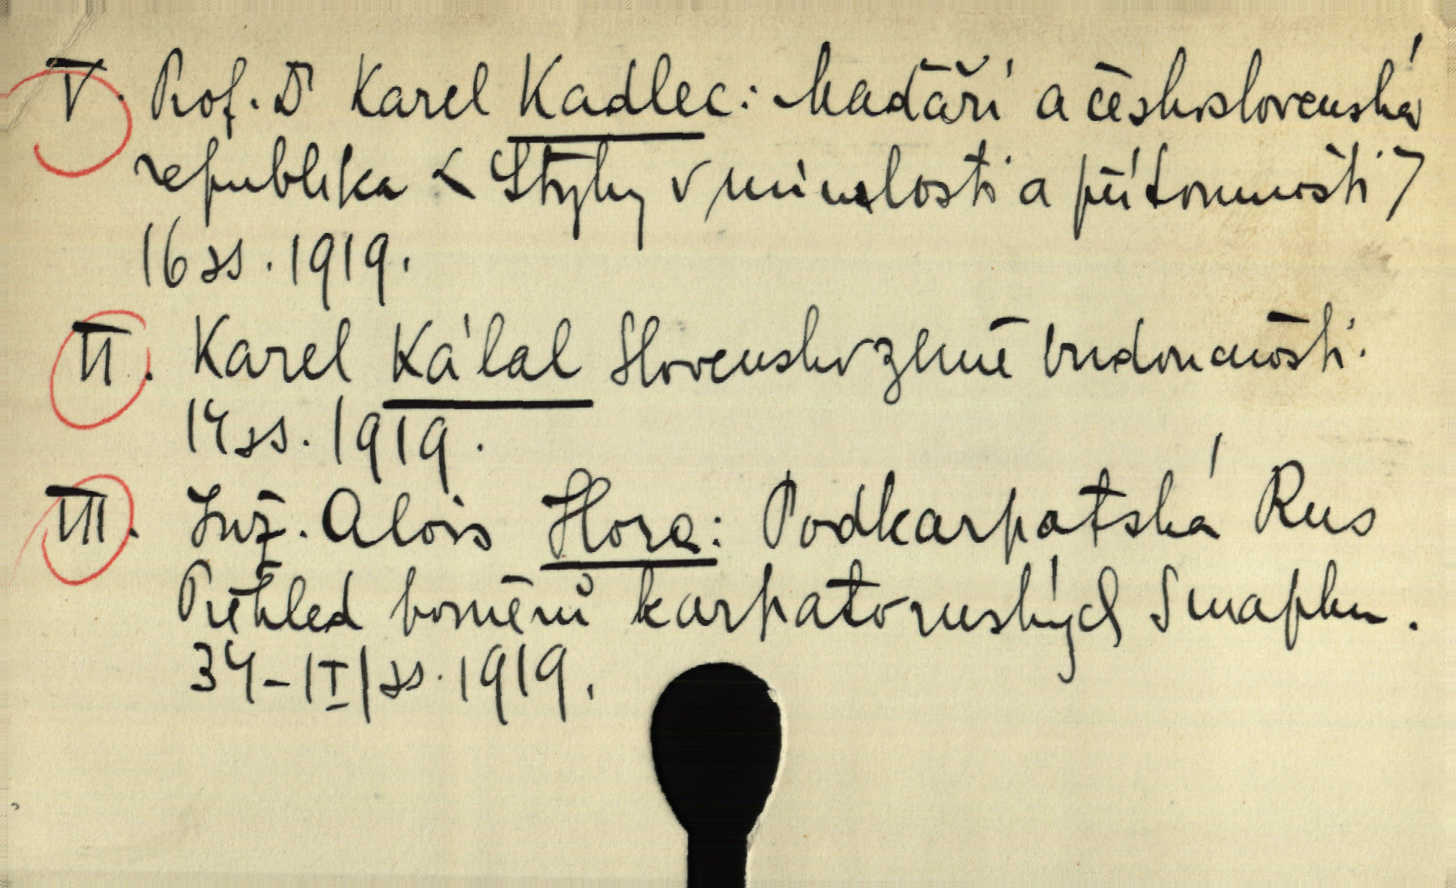 V. Prof. Dr Karel Kadlec: Maďăři a československá
republika < Styky v minulosti a přítomnosti >
16 ss. 1919.
II. Karel Kálal Slovensko země budoucnosti.
14 ss. 1919.
III. Inž. Alois Hora: Podkarpatská Rus
Přehled poměrů karpatoruských S mapkou.
34-|I| ss. 1919.